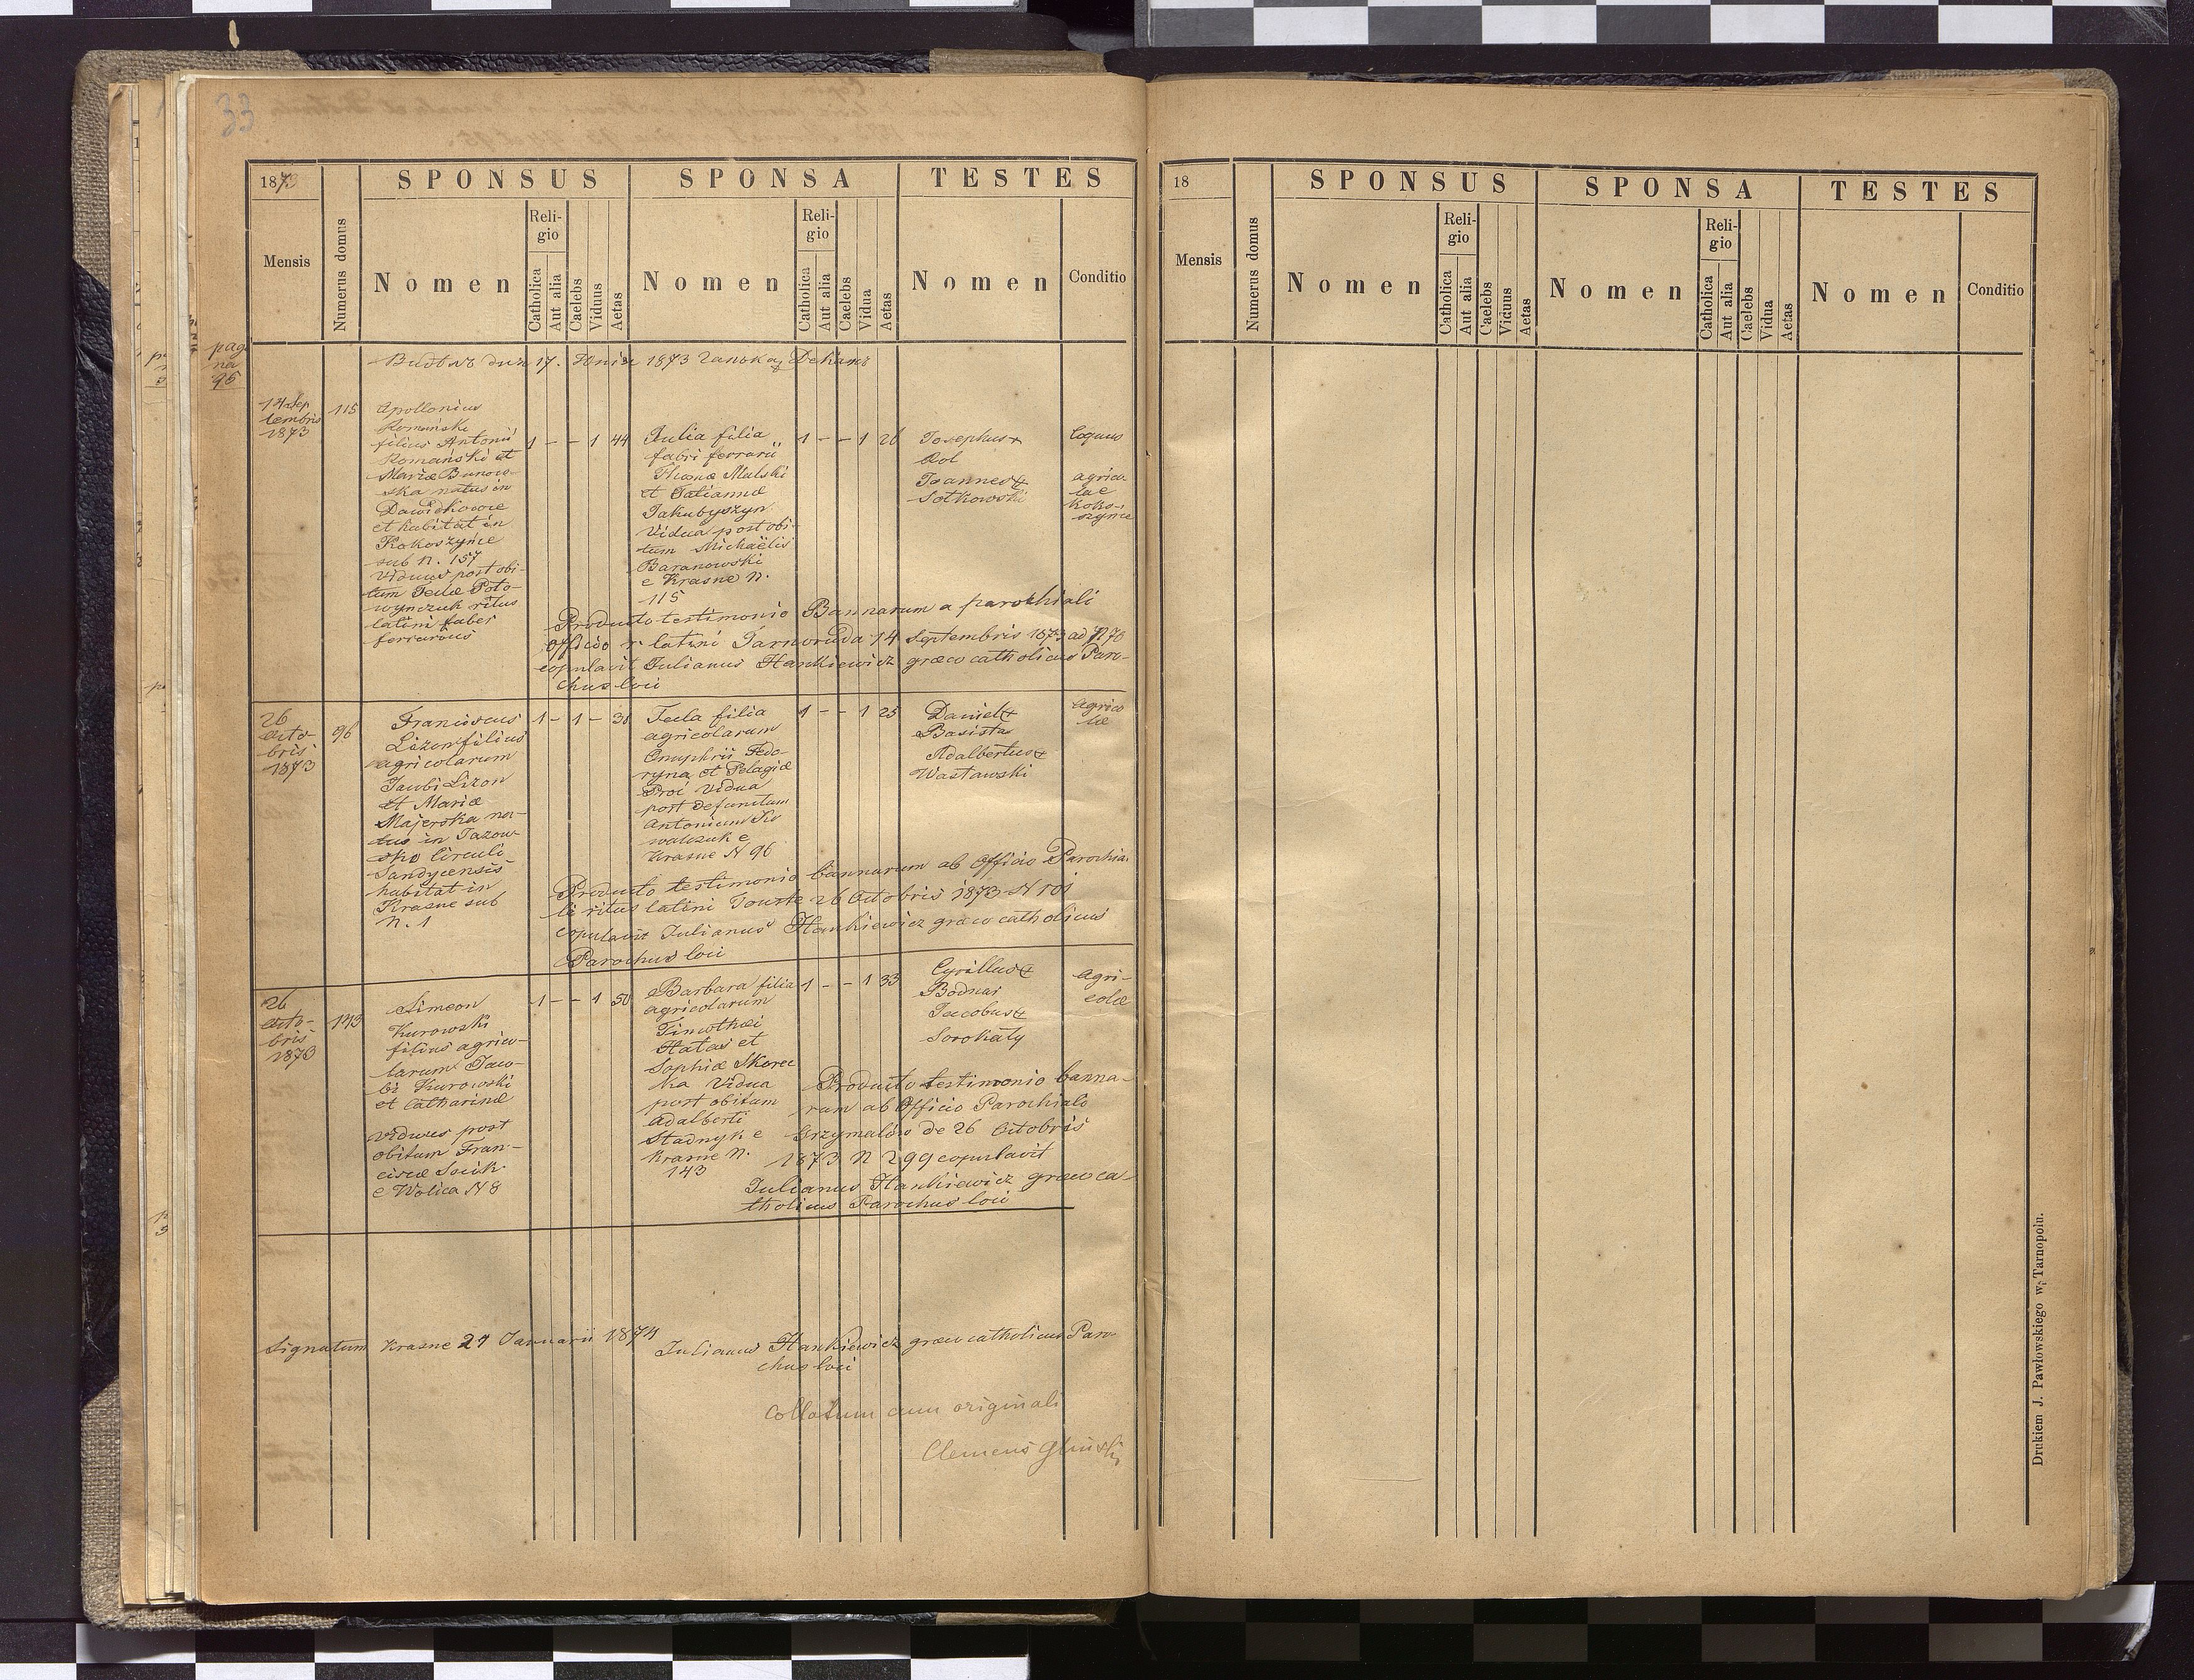 33
1873
SPONSUS
SPONSA
TESTES
Mensis
Numerus domus
Nomen
Religio
Catholica
Aut alia
Caelebs
Viduus
Aetas
Nomen
Religio
Catholica
Aut alia
Caelebs
Vidua
Aetas
Nomen
Conditio
pag
na
95
17. 1873
14 Sep
tembris
1873
115
Apollonius
Romański
filius Antonii
Romański et
Mariæ
ska natus in
Dawidkowce
et habitat in
Kokoszyńce
sub N. 157
viduus post obi-
tum Teclæ Poto-
wynczuk ritus
latini faber
ferrarius
1 - - 1 44
Julia filia
fabri ferrarii
Thomæ Malski
et Tatiannæ
Jakubyszyn
Vidua post obi-
tum Michaëlis
Baranowski
e Krasne N.
115
1 - - 1 26
Josephus +
Rol
Joannes +
Sotkowski
coquus
agrico-
lae
Koko-
szynce
Producto testimonio Bannarum a parochiali
Officio r. latini Tarnoruda 14 Septembris 1873 ad N 70
copulavit Julianus Hankiewicz græco catholicus Paro-
chus loci
26
Octo-
bris
1873
96
Franciscus
Lizon filius
agricolarum
Jacobi Lizon
et Mariæ
Majerska na-
tus in Jazow-
sko Circuli
Sandycensis
habitat in
Krasne sub
N. 1
1 - 1 -
Tecla filia
agricolarum
Onuphrii Fedo-
ryna et Pelagiæ
Proć Vidua
post defunctum
Antonium Ko
walczuk e
Krasne N 96
1 - - 1 25
Daniel +
Basista
Adalbertus +
Wastawski
agrico
læ
Producto testimonio bannarum ab Officio Parochia-
li ritus latini Touste 26 Octobris 1873 N 101
copulavit Julianus Hankiewicz græco catholicus
Parochus loci
26
Octo-
bris
1873
143
Simeon
Kurowski
filius agrico-
larum Jaco-
bi Kurowski
et Catharinæ
viduus post
obitum Fran-
ciscæ
e Wolica N 8
1 - - 1 50
Barbara filia
agricolarum
Timothei
Hatas et
Sophiæ Skorec
ka Vidua
post obitum
Adalberti
Stadnyk e
Krasne N.
143
1 - - 1 33
Cyrillus +
Bodnar
Jacobus +
Sorokaty
Agri-
colæ
Producto testimonio banna-
rum ab Officio Parochiali
Grzymałów de 26 Octobris
1873 N 299 copulavit
Julianus Hankiewicz græco ca-
tholicus Parochus loci
Signatum Krasne 27 Januarii 1874
Julianus Hankiewicz græco catholicus Paro-
chus loci
Collatum cum originali
Clemens
18
SPONSUS
SPONSA
TESTES
Mensis
Numerus domus
Nomen
Religio
Catholica
Aut alia
Caelebs
Viduus
Aetas
Nomen
Religio
Catholica
Aut alia
Caelebs
Vidua
Aetas
Nomen
Conditio
Drukiem J. Pawłowskiego w Tarnopolu.